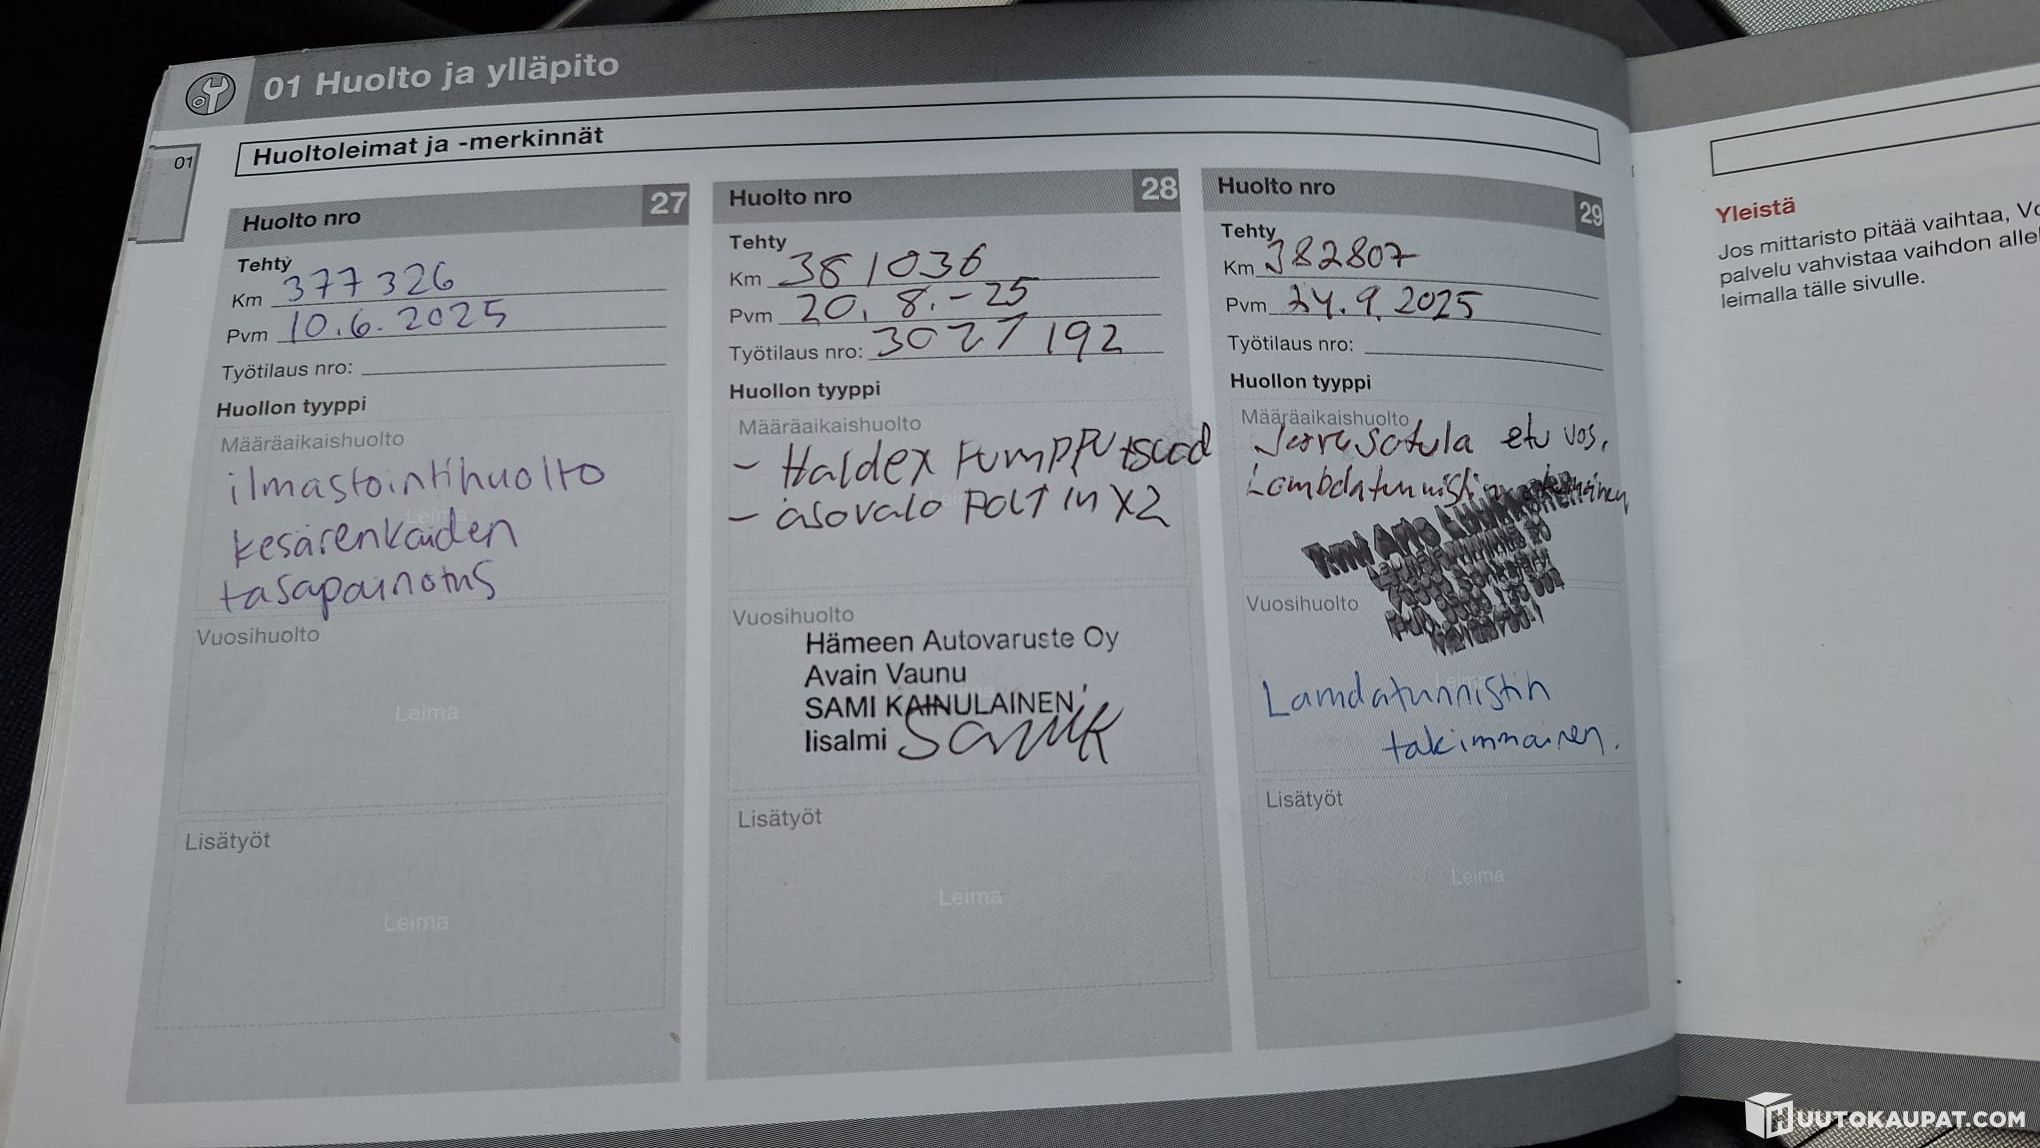 01 Huolto ja ylläpito
Huoltoleimat ja -merkinnät
01
Huolto nro 27
Tehty
Km 377 326
Pvm 10.6.2025
Työtilaus nro:
Huollon tyyppi
Määräaikaishuolto
ilmastointihuolto
kesärenkaiden
tasapainotus
Vuosihuolto
Leima
Lisätyöt
Leima
Huolto nro 28
Tehty
Km 381036
Pvm 20.8.-25
Työtilaus nro: 3027192
Huollon tyyppi
Määräaikaishuolto
- Haldex PUMPPU
- ajovalo POLTIN X2
Vuosihuolto
Hämeen Autovaruste Oy
Avain Vaunu
SAMI KAINULAINEN
Iisalmi
Lisätyöt
Leima
Huolto nro 29
Tehty
Km 382807
Pvm 24.9.2025
Työtilaus nro:
Huollon tyyppi
Määräaikaishuolto
Jarrusatula etu vas.
Lambdatunnistin
Vuosihuolto
Lamdatunnistin
takimmainen.
Lisätyöt
Leima
Yleistä
Jos mittaristo pitää vaihtaa,
palvelu vahvistaa vaihdon
leimalla tälle sivulle.
HUUTOKAUPAT.COM